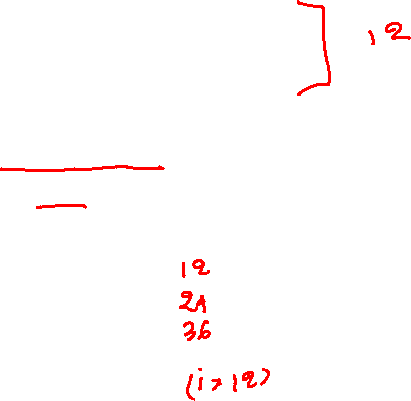 12
12
24
36
(i > 12)